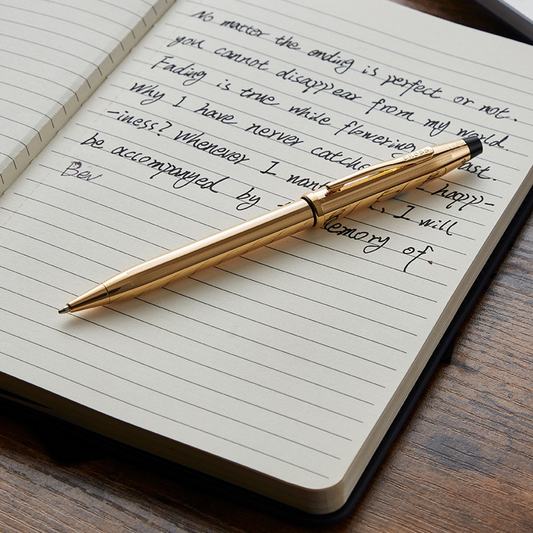 No matter the ending is perfect or not.
you cannot disappear from my world.
Fading is true while flowering
Why I have nerver catche past.
-iness? Whenever I I happ-
be accompanyed by I will
emory of.
Bev